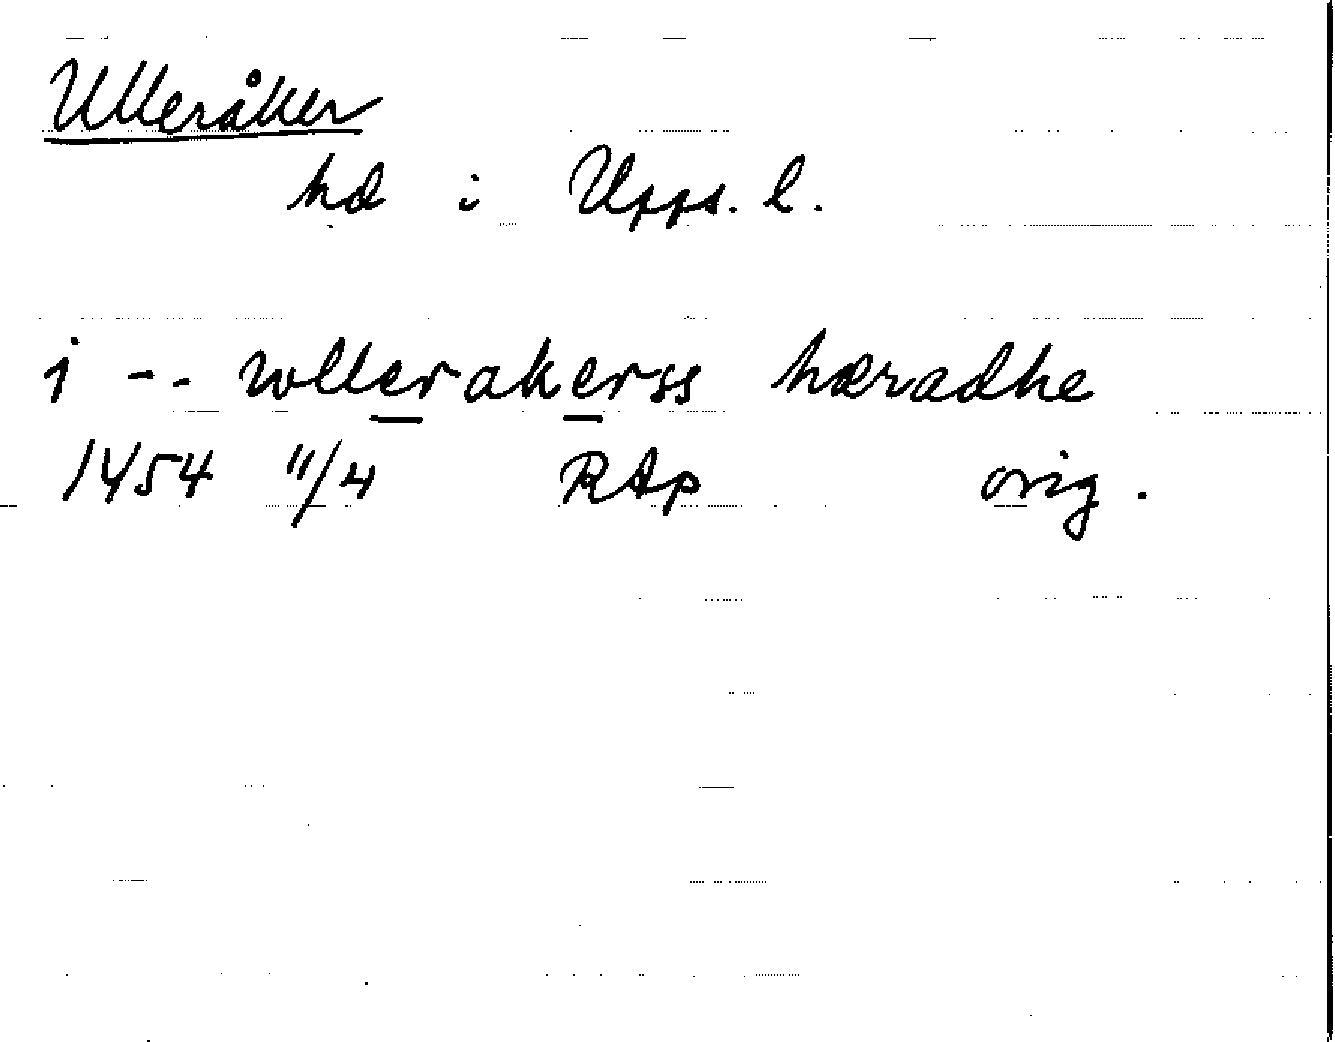 Ulleråker
hd i Upps. l.
j -- wllerakerss hæradhe
1454 11/4 RAp orig.